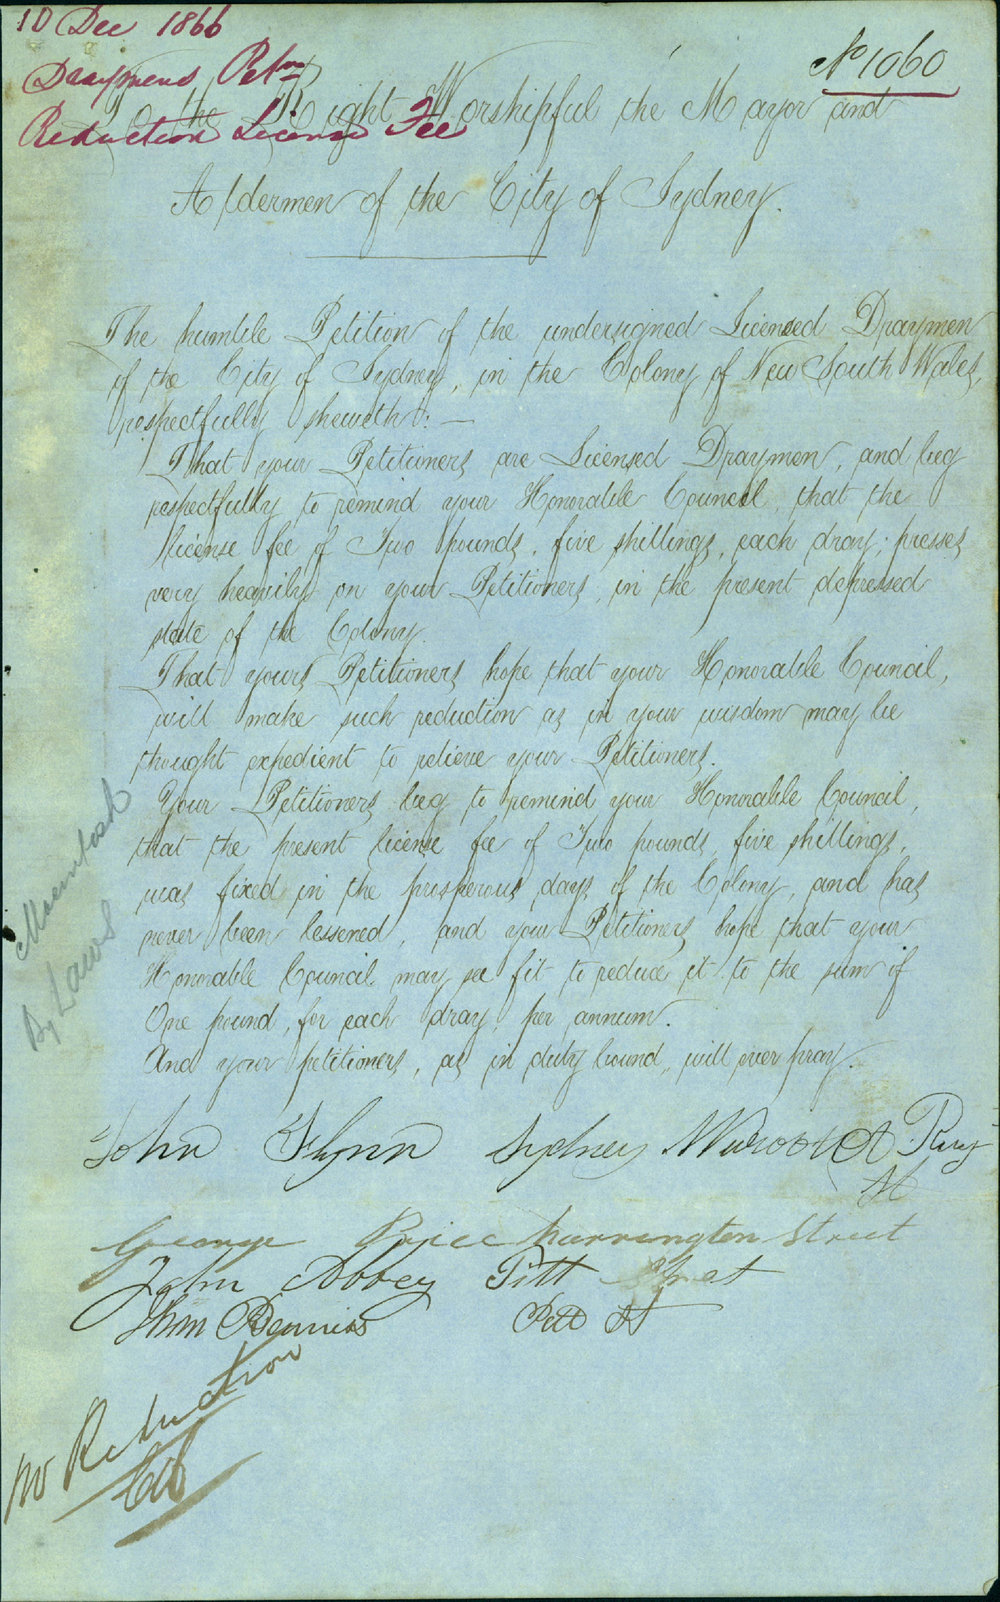 10 Dec 1866
Draymens Petn
Reduction License Fee
No 1060
To the Right Worshipful the Mayor and
Aldermen of the City of Sydney.
The humble Petition of the undersigned Licensed Draymen
of the City of Sydney, in the Colony of New South Wales,
respectfully sheweth: —
That your Petitioners are Licensed Draymen, and beg
respectfully to remind your Honorable Council, that the
license fee of Two pounds, five shillings, each dray; presses
very heavily on your Petitioners, in the present depressed
state of the Colony.
That yours Petitioners hope that your Honorable Council,
will make such reduction as in your wisdom may be
thought expedient to relieve your Petitioners.
Your Petitioners beg to remind your Honorable Council,
that the present license fee of Two pounds, five shillings,
was fixed in the prosperous days of the Colony, and has
never been lessened, and your Petitioners hope that your
Honorable Council may see fit to reduce it to the sum of
One pound, for each dray, per annum.
And your petitioners, as in duty bound, will ever pray.
Macintosh
By Laws
John Flynn Sydney
George Price harrington Street
John Abbey Pitt Street
Pitt St
no Reduction